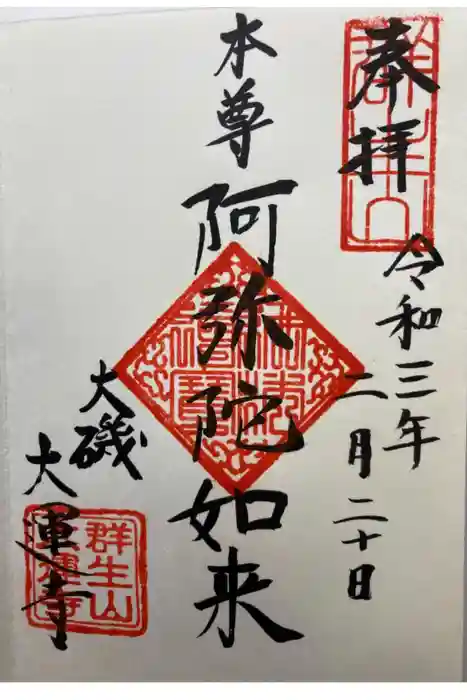 奉拝
令和三年
二月二十日
本尊
阿弥陀如来
大磯
大運寺
群生山
群生山
大運寺